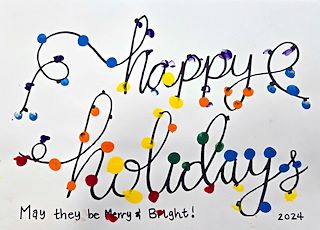 happy
holidays
May they be Merry & Bright!
2024